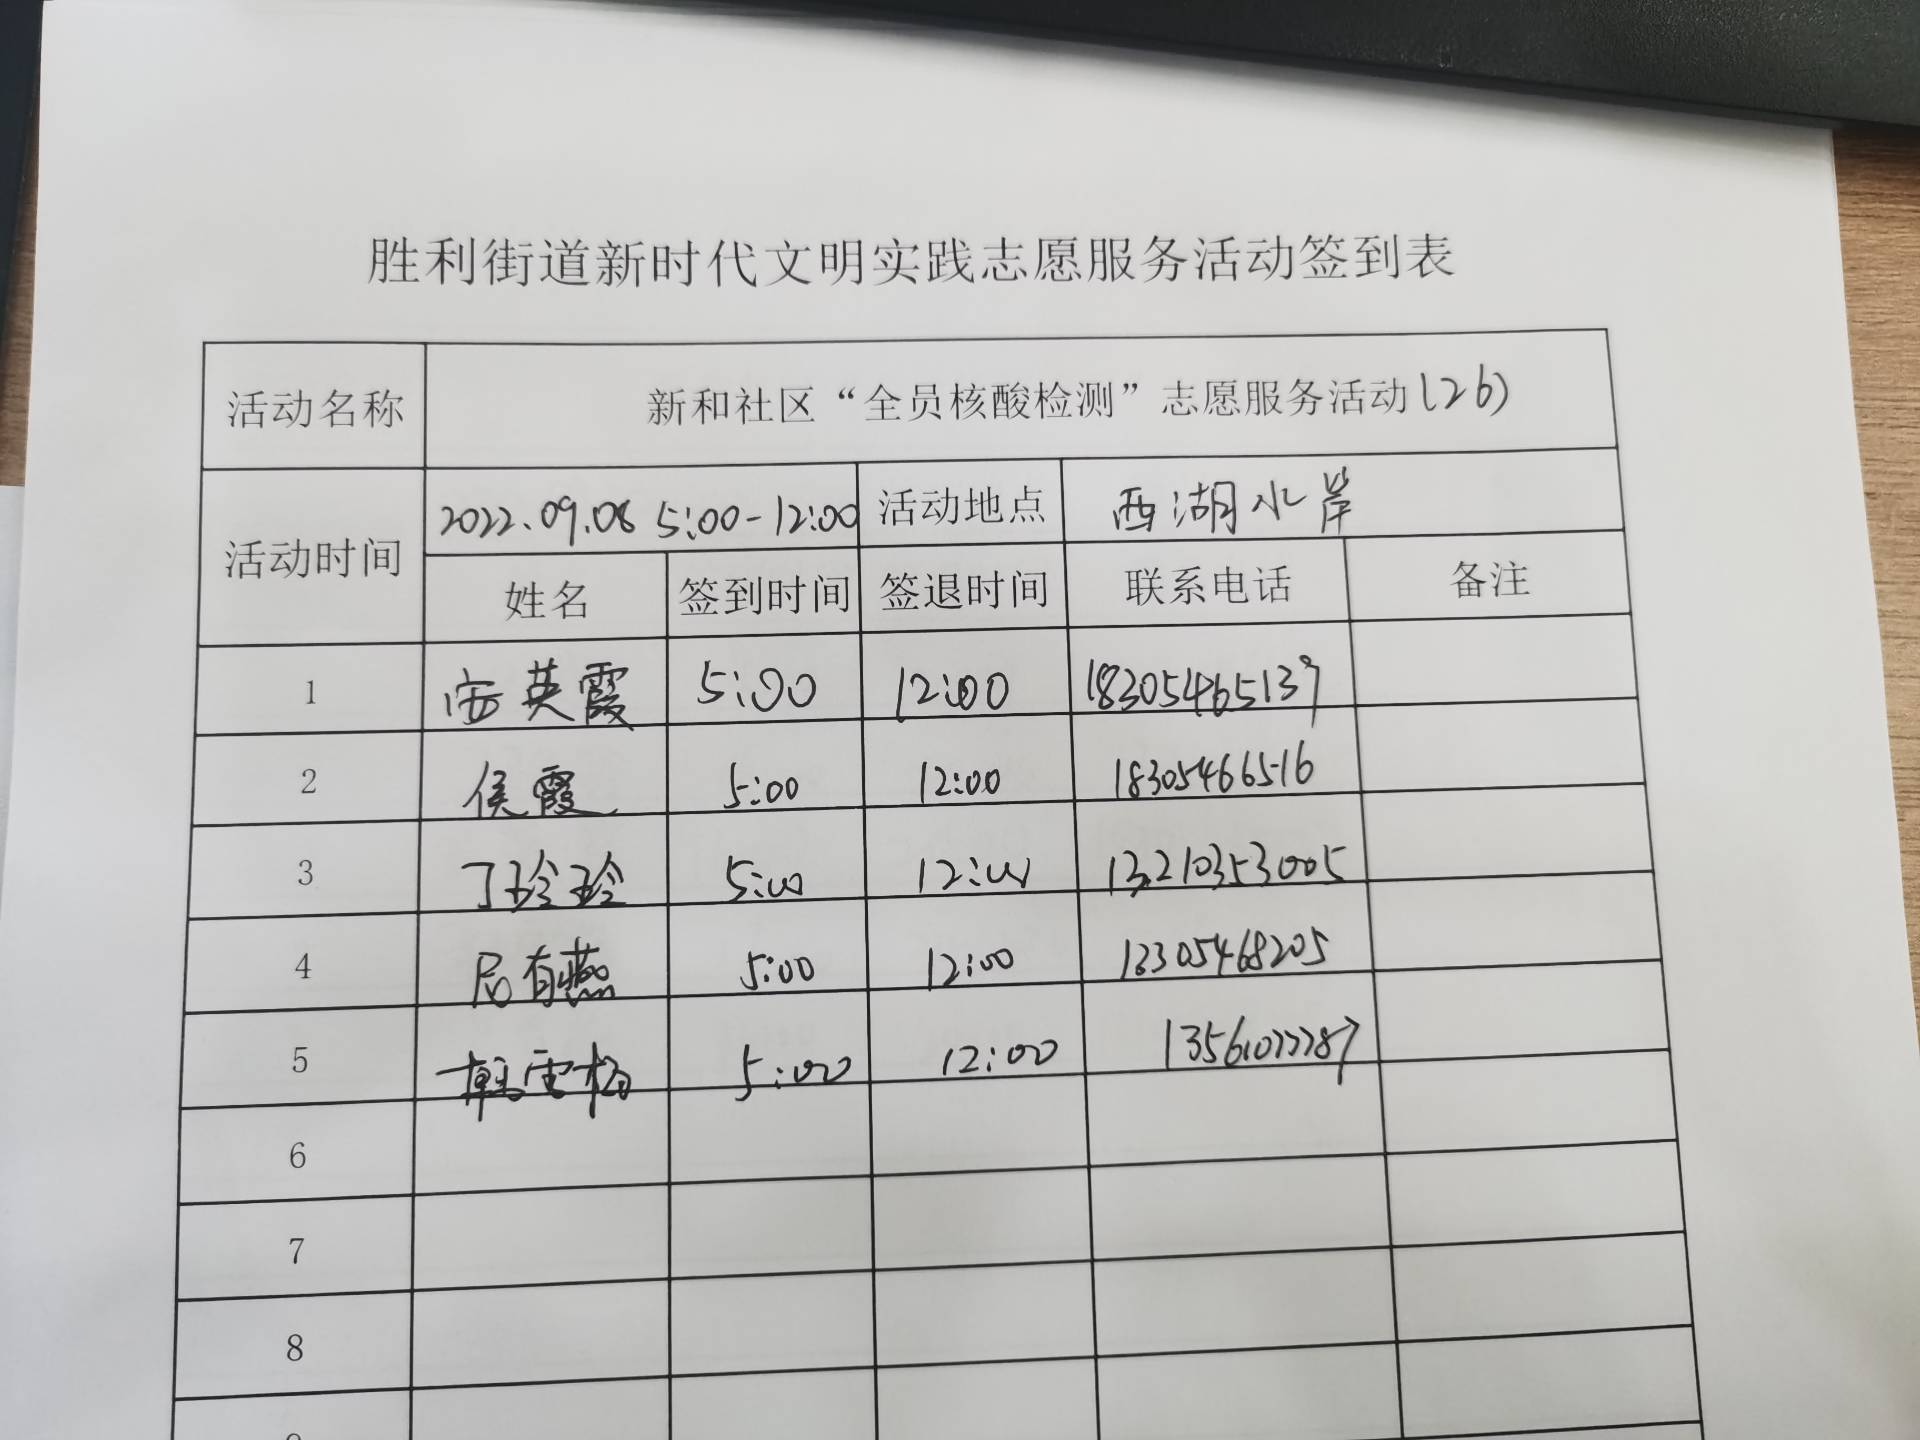 胜利街道新时代文明实践志愿服务活动签到表
活动名称 新和社区“全员核酸检测”志愿服务活动(26)
活动时间 2022.09.08 5:00-12:00 活动地点 西湖水岸
姓名 签到时间 签退时间 联系电话 备注
1 安英霞 5:00 12:00 18305465139
2 侯霞 5:00 12:00 18305466516
3 丁玲玲 5:00 12:00 13210353005
4 有燕 5:00 12:00 13305468205
5 韩雪梅 5:00 12:00
6
7
8